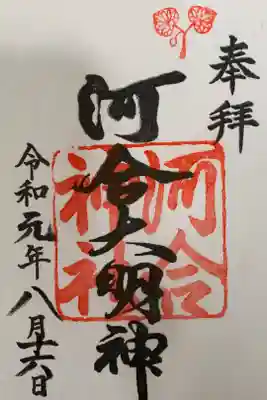 奉拝
河合大明神
河合
神社
令和元年八月十六日